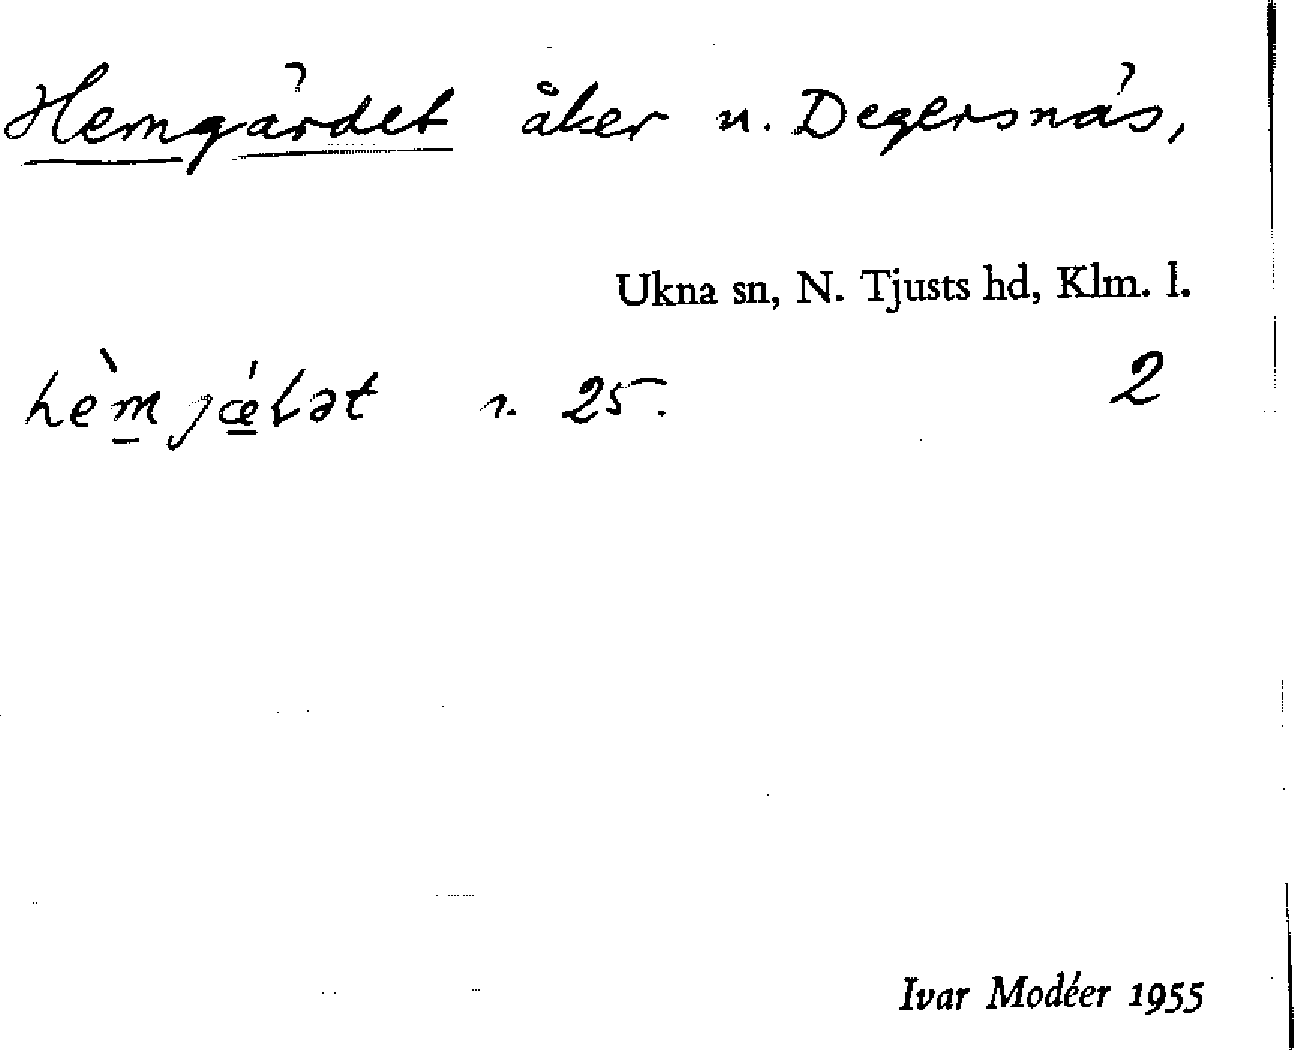 Hemgärdet åker n. Degersnäs,
Ukna sn, N. Tjusts hd, Klm. l.
hèm jǽlət r. 25. 2
Ivar Modéer 1955